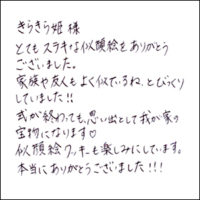 きらきら姫 様
とてもステキな似顔絵をありがとう
ございました。
家族や友人もよく似ているね、とびっくり
していました!!
式が終わっても、思い出として我が家の
宝物になります♡
似顔絵クッキーも楽しみにしています。
本当にありがとうございました!!!